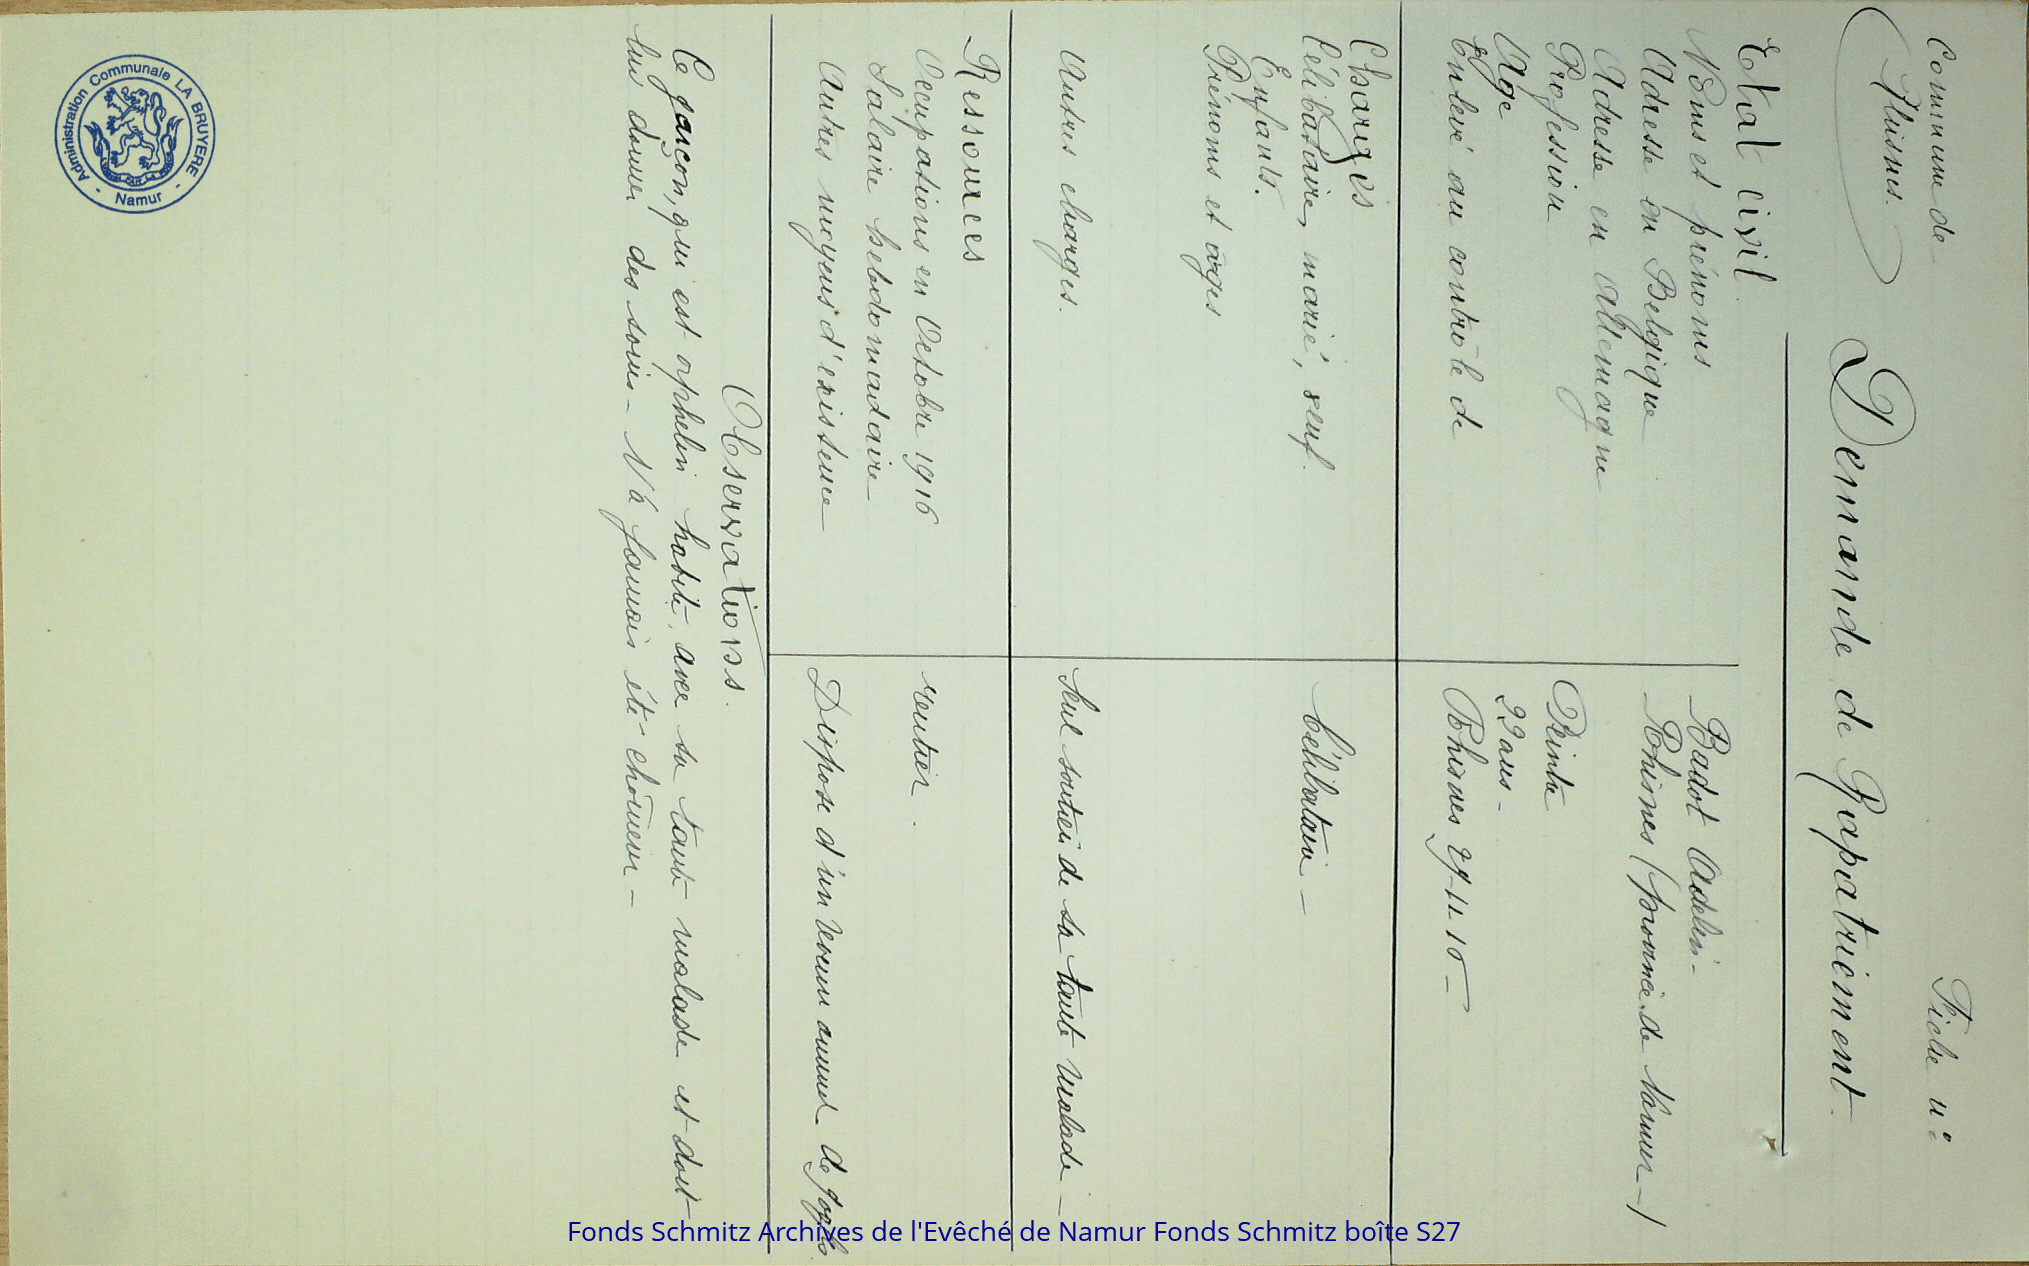 Commune de
Fiche n°
Rhisnes.
Demande de Rapatriement.
Etat civil.
Noms et prénoms
Badot Adelin-
Adresse en Belgique
Rhisnes (province de Namur-)
Adresse en Allemagne
Profession
Peintre
Age
22 ans-
Enlevé au contrôle de
Rhisnes
Charges
Célibataire, marié, veuf.
Célibataire-
Enfants.
Prénoms et âges
Autres charges.
Seul soutien de sa tante malade-
Ressources
Occupations en Octobre 1916
rentier.
Salaire hebdomadaire
Autres moyens d'existence
Dispose d'un revenu annuel de
Observations.
Ce garçon, qui est orphelin habite avec sa tante malade et doit
lui donner des soins- N'a jamais été chômeur-
Administration Communale LA BRUYERE - Namur -
Fonds Schmitz Archives de l'Evêché de Namur Fonds Schmitz boîte S27